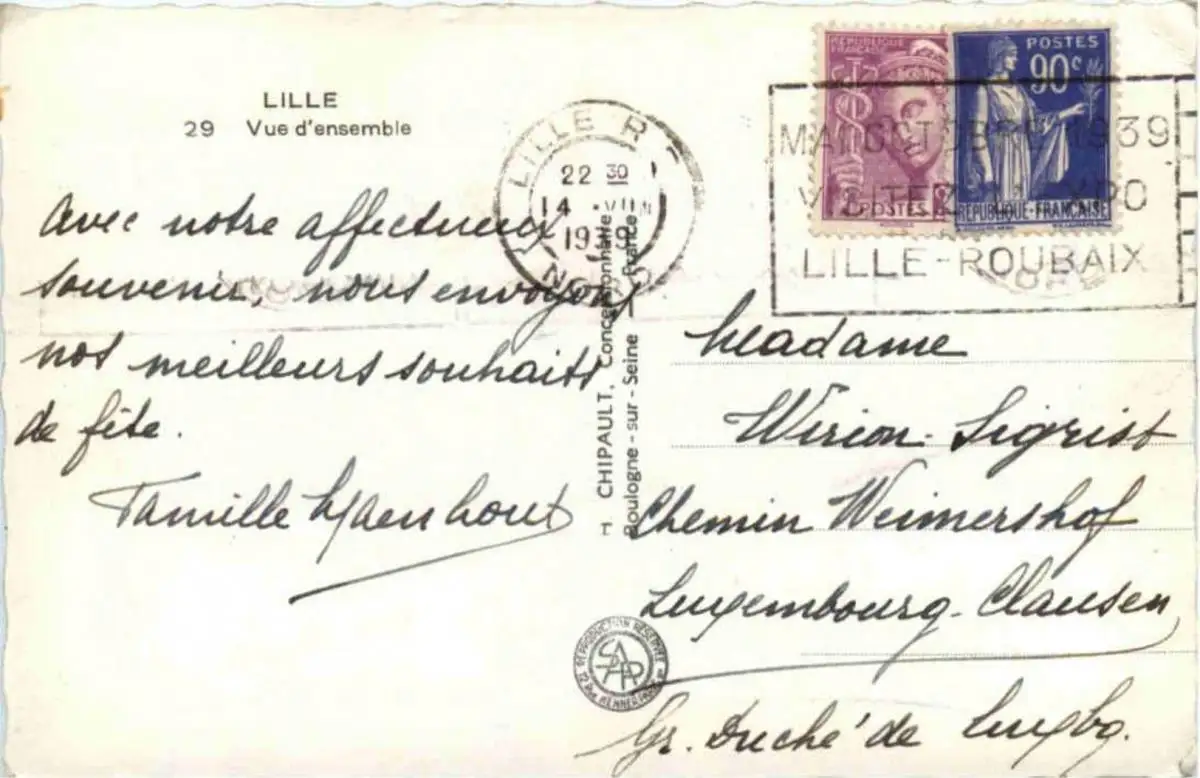 LILLE
29 Vue d'ensemble
Avec notre affectueux
souvenir, nous envoyons
nos meilleurs souhaits
de fête.
Famille
LILLE R.
22 30
14
NORD
CHIPAULT, Concessionnaire
Boulogne-sur-Seine France
REPRODUCTION
SAPR
REPUBLIQUE
FRANÇAISE
POSTES
POSTES
90c
REPUBLIQUE-FRANÇAISE
OCTOBRE 1939
VISITEZ EXPO
LILLE-ROUBAIX
Madame
Wirion-Sigrist
Chemin Weimershof
Luxembourg-Clausen
Gr. Duché de Luxbg.